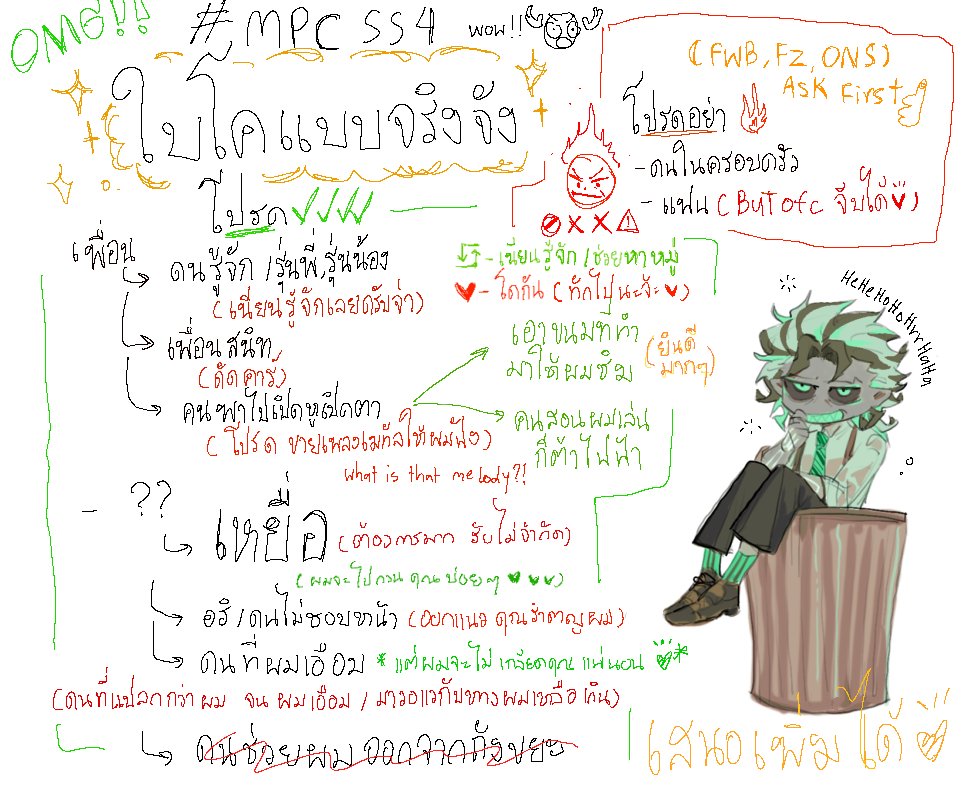 OMG!!
#MPC SS4 WOW!!
ใบโคแบบจริงจัง
(FWB, FZ, ONS)
Ask First
โปรดอย่า
-คนในครอบครัว
-แฟน (But ofc จีบได้)
โปรด
เพื่อน
คนรู้จัก /รุ่นพี่,รุ่นน้อง
(เนียนรู้จักเลยครับจ่า)
เพื่อนสนิท
(คัดคาร์)
คนพาไปเปิดหูเปิดตา
(โปรด ขายเพลงเมทัลให้ผมฟัง)
What is that melody?!
- เนียนรู้จัก /ช่วยหาหมู่
- โคกัน (ทักไปนะจ๊ะ)
เอาขนมที่ทำ
มาให้ผมชิม
(ยินดี
มากๆ)
คนสอนผมเล่น
กีต้าไฟฟ้า
- ??
เหยื่อ (ต้องการมาก รับไม่จำกัด)
(ผมจะไปกวนคุณบ่อยๆ)
อริ /คนไม่ชอบหน้า (ออกแนวคุณรำคาญผม)
คนที่ผมเอือม *แต่ผมจะไม่เกลียดคุณแน่นอน*
(คนที่แปลกกว่าผม จนผมเอือม / มาวอแวกับทางผมเหลือเกิน)
คนช่วยผมออกจากถังขยะ
HeHeHoHoHHrrHaHa
เสนอเพิ่มได้